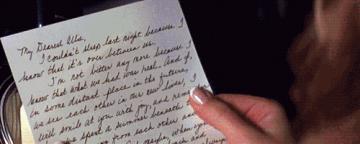 My Dearest Allie,
I couldn't sleep last night because I
know that it's over between us.
I'm not bitter any more because I
know that what we had was real. And if
in some distant place in the future
we see each other in our new lives, I
will smile at you with joy, and
we spent a summer beneath
from each other and
maybe, when you
back and